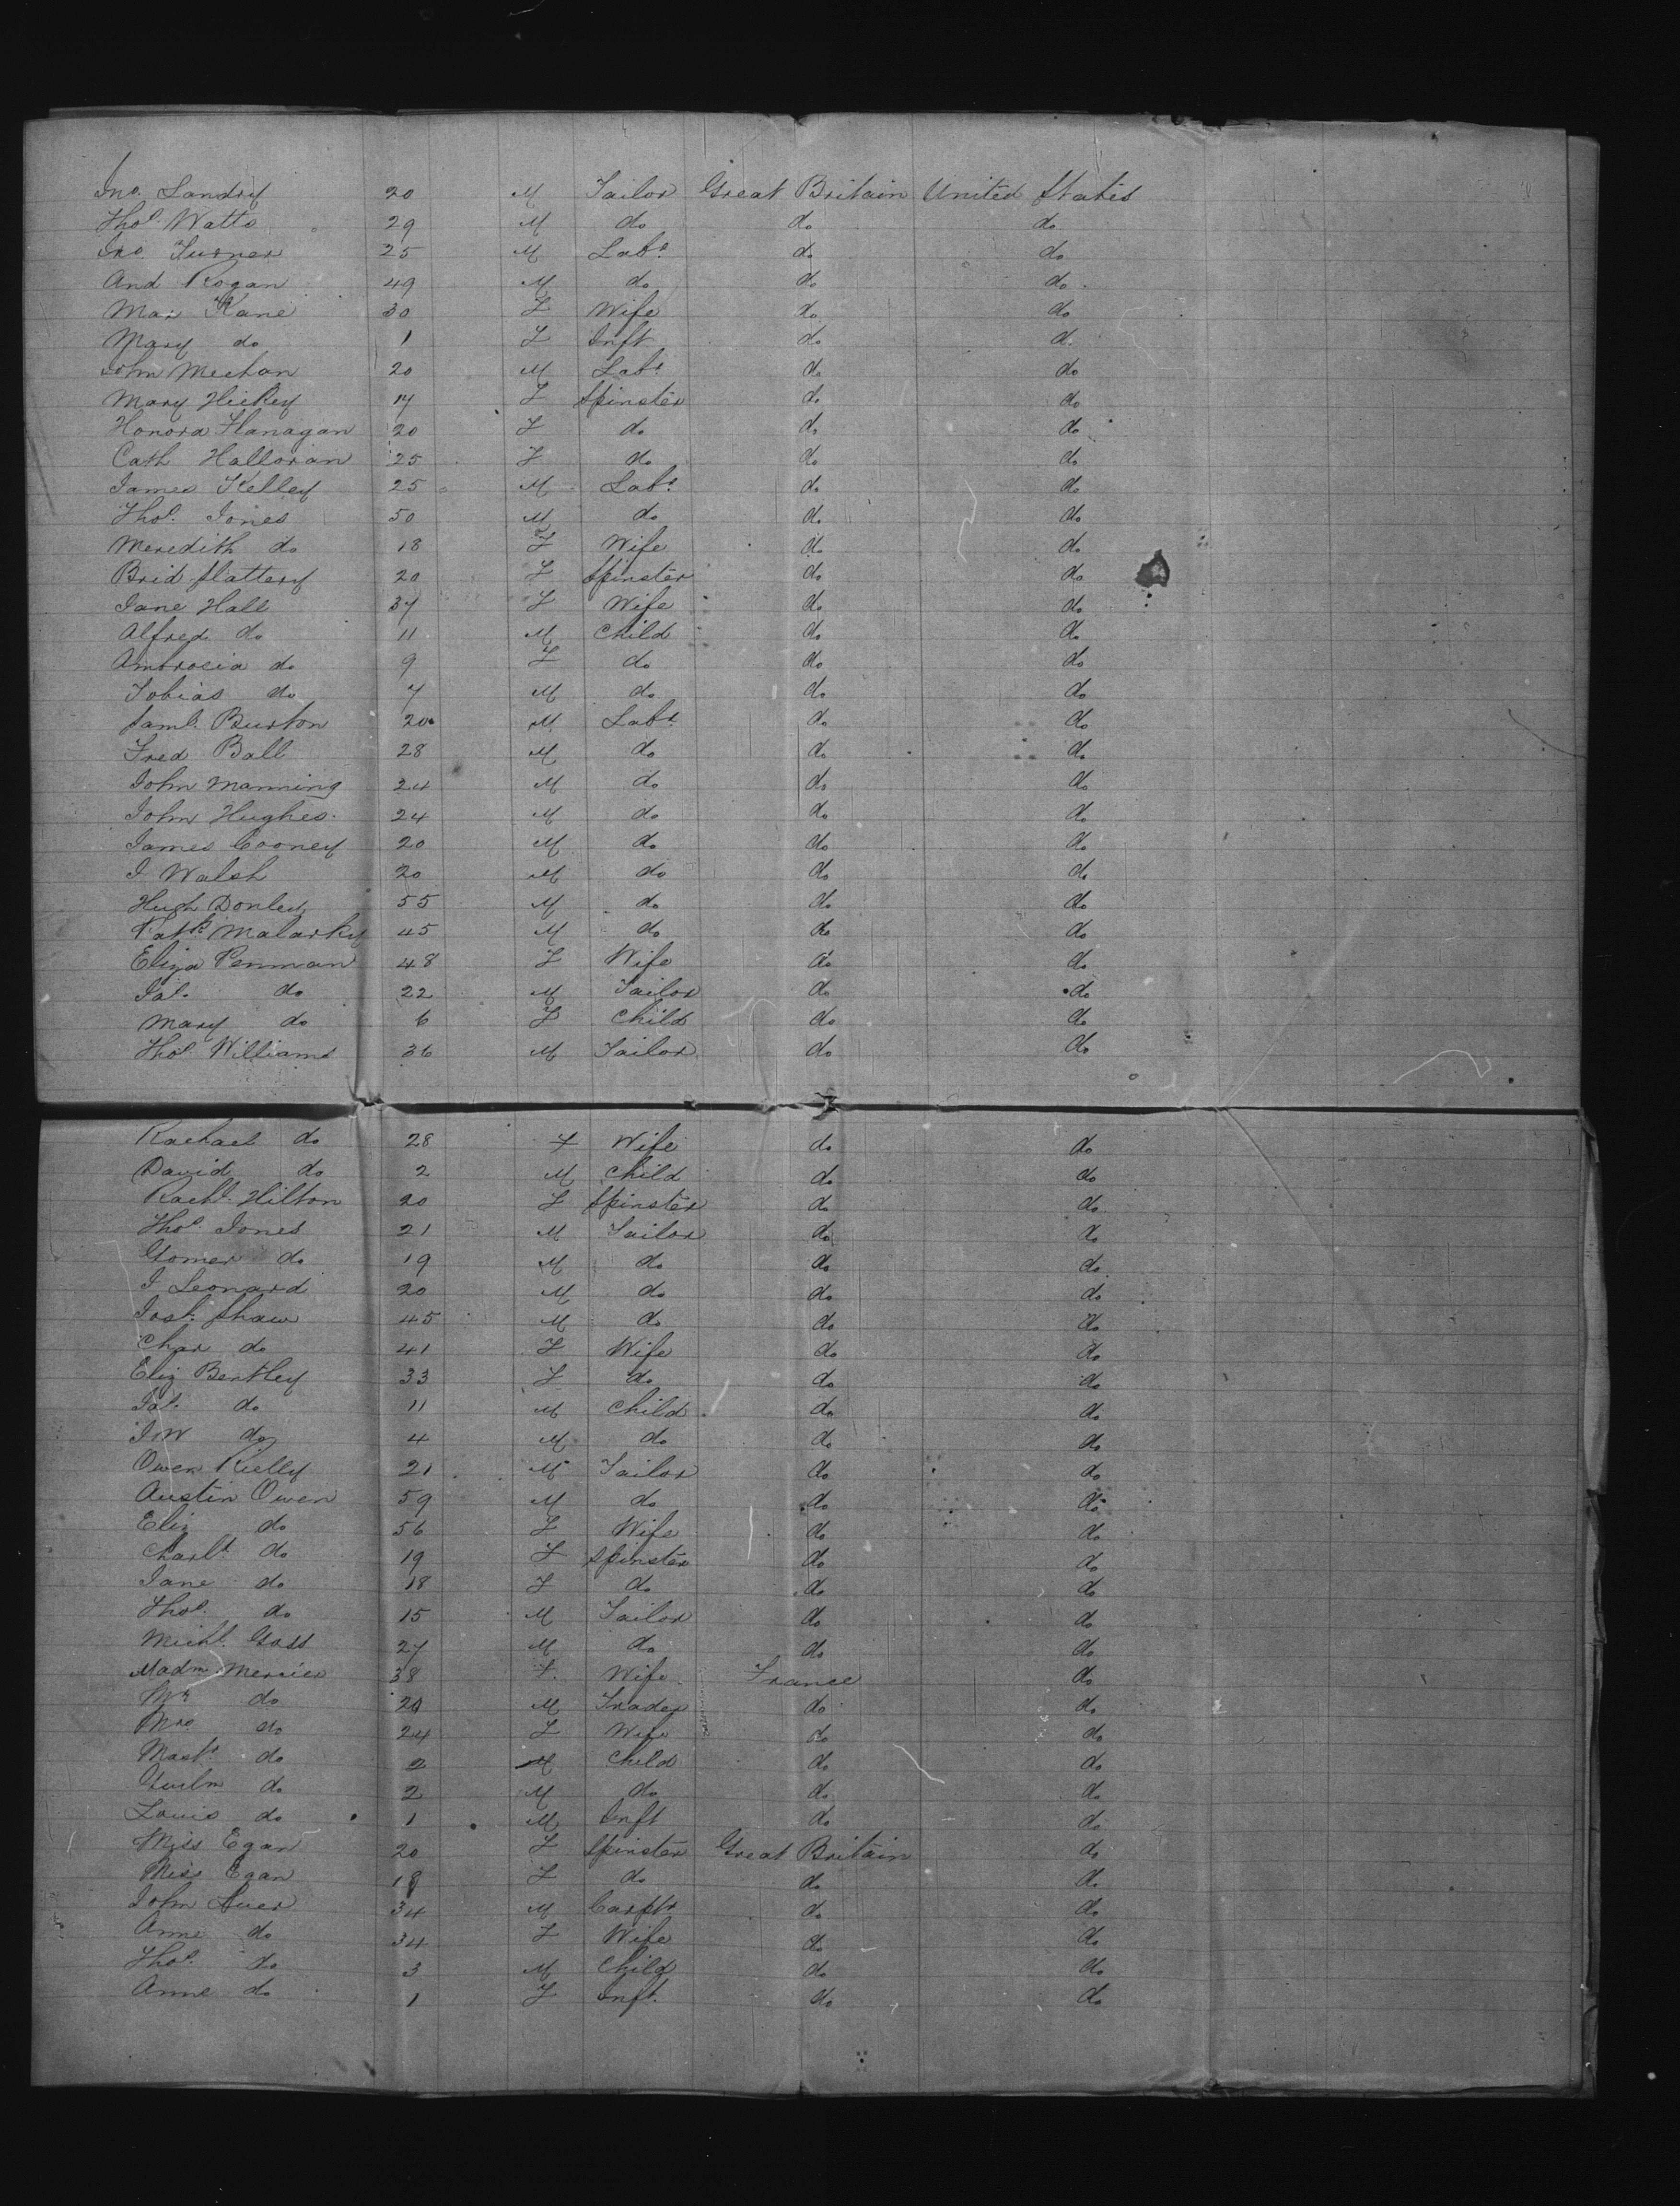 Jno. Landry 20 M Tailor Great Britain United States
Thos. Watts 29 M do do do
Jno. Turner 25 M Labr. do do
And Rogan 49 M do do do
Mar Kane 30 F Wife do do
Mary do 1 F Inft do do
John Meehan 20 M Labr. do do
Mary Hickey 17 F Spinster do do
Honora Flanagan 20 F do do do
Cath Halloran 25 F do do do
James Kelley 25 M Labr. do do
Thos. Jones 50 M do do do
Meredith do 18 F Wife do do
Brid Slattery 20 F Spinster do do
Jane Hall 37 F Wife do do
Alfred do 11 M Child do do
Ambrosia do 9 F do do do
Tobias do 7 M do do do
Saml. Burton 20 M Labr. do do
Fred Ball 28 M do do do
John Manning 24 M do do do
John Hughes 24 M do do do
James Cooney 20 M do do do
J Walsh 20 M do do do
Hugh Donley 55 M do do do
Patk. Malarky 45 M do do do
Eliza Penman 48 F Wife do do
Pat. do 22 M Tailor do do
Mary do 6 F Child do do
Thos. Williams 36 M Tailor do do
Rachael do 28 F Wife do do
David do 2 M Child do do
Rachl. Hilton 20 F Spinster do do
Thos. Jones 21 M Tailor do do
Gomer do 19 M do do do
J Leonard 20 M do do do
Josh. Shaw 45 M do do do
Char do 41 F Wife do do
Eliz Bentley 33 F do do do
Pat. do 11 M Child do do
J W do 4 M do do do
Owen Kielly 21 M Tailor do do
Austin Owen 59 M do do do
Eliz do 56 F Wife do do
Charlt. do 19 F Spinster do do
Jane do 18 F do do do
Thos. do 15 M Tailor do do
Michl. Goss 27 M do do do
Madm. Mercier 38 F. Wife France do
Mr do 20 M Trader do do
Mrs do 24 F Wife do do
Mastr. do 2 M Child do do
Guilm do 2 M do do do
Louis do 1 M Inft do do
Miss Egan 20 F Spinster Great Britain do
Miss Egan 18 F do do do
John 34 M Carptr do do
Anne do 34 F Wife do do
Thos. do 3 M Child do do
Anne do 1 F Inft. do do